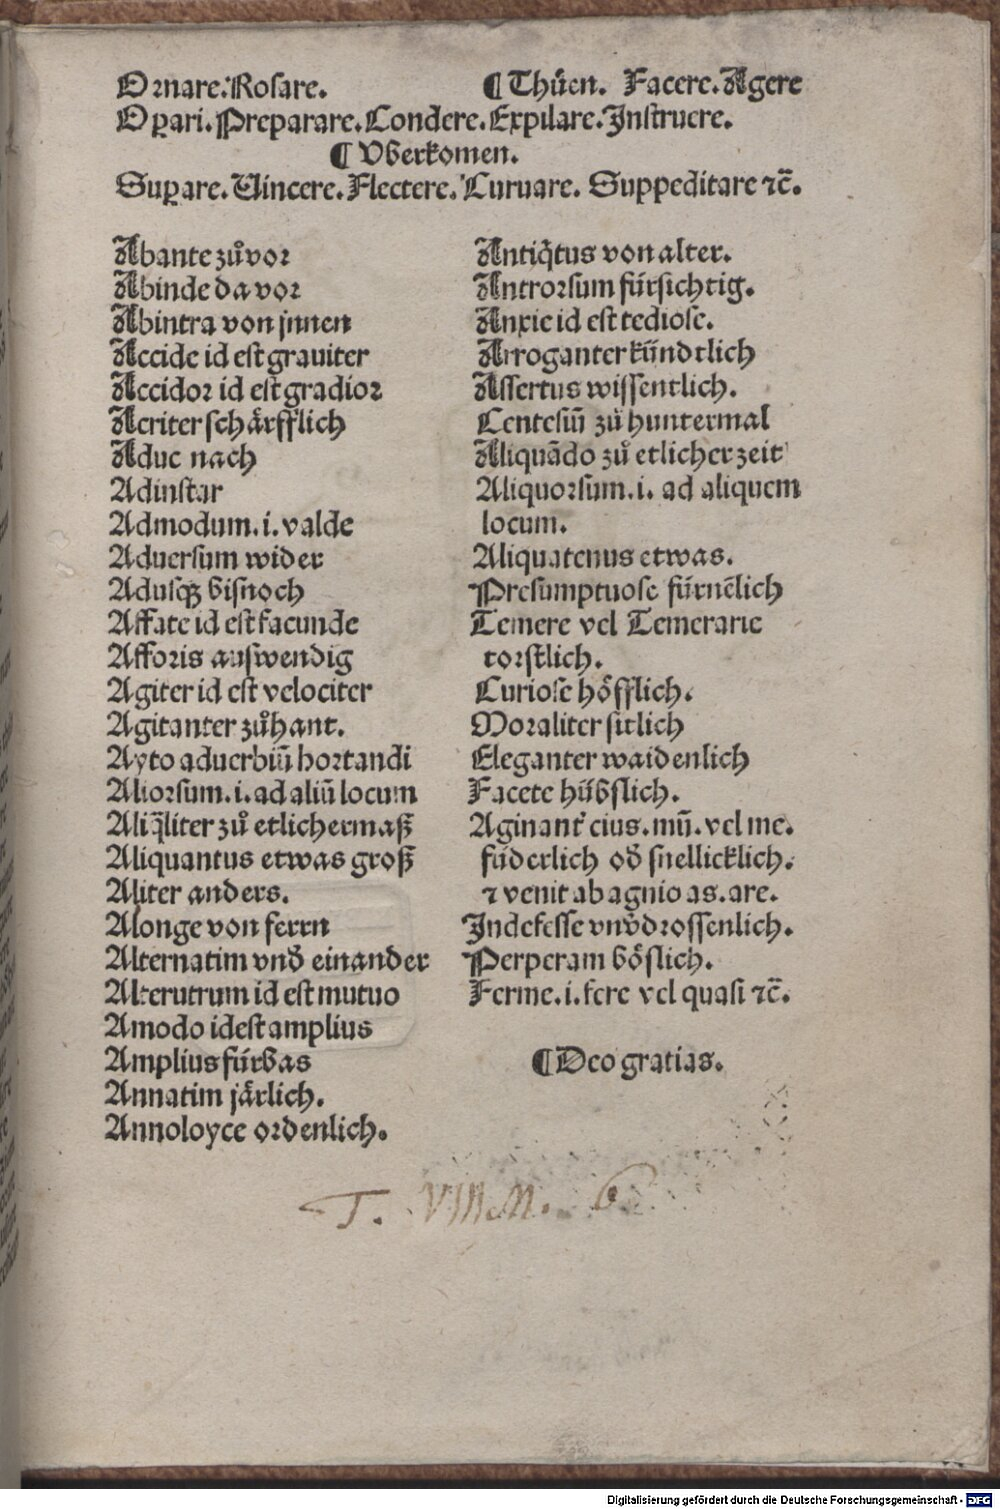 Ornare. Rosare. ¶ Thuͤen. Facere. Agere
Oꝑari. Preparare. Condere. Expilare. Instruere.
¶ Vberkomen.
Suꝑare. Vincere. Flectere. Curuare. Suppeditare ⁊c̄.
Abante zuͦ vor
Abinde da vor
Abintra von jnnen
Accide id est grauiter
Accidor id est gradior
Acriter schaͤrfflich
Aduc nach
Adinstar
Admodum .i. valde
Aduersum wider
Adusqꝫ bisnoch
Affate id est facunde
Afforis auswendig
Agiter id est velociter
Agitanter zuͦhant.
Ayto aduerbiū hortandi
Aliorsum .i. ad aliū locum
Aliq̄liter zuͦ etlichermaß
Aliquantus etwas groß
Aliter anders.
Alonge von ferrn
Alternatim vnd̄ einander
Alterutrum id est mutuo
Amodo idest amplius
Amplius fürbas
Annatim jaͤrlich.
Annoloyce ordenlich.
Antiq̈tus von alter.
Antrorsum fürsichtig.
Anxie id est tediose.
Arroganter kündtlich
Assertus wissentlich.
Centesiū zuͦ huntermal
Aliquādo zuͦ etlicher zeit
Aliquorsum .i. ad aliquem
locum.
Aliquatenus etwas.
Presumptuose fürnēlich
Temere vel Temerarie
torstlich.
Curiose hoͤfflich.
Moraliter sitlich
Eleganter waidenlich
Facete hübslich.
Aginant᷑ cius. mū. vel me.
füderlich od̄ snellicklich.
⁊ venit ab agnio as. are.
Indefesse vnv̄drossenlich.
Perperam boͤslich.
Ferme .i. fere vel quasi ⁊c̄.
¶ Deo gratias.
T. VIII. M. 6
Digitalisierung gefördert durch die Deutsche Forschungsgemeinschaft - DFG